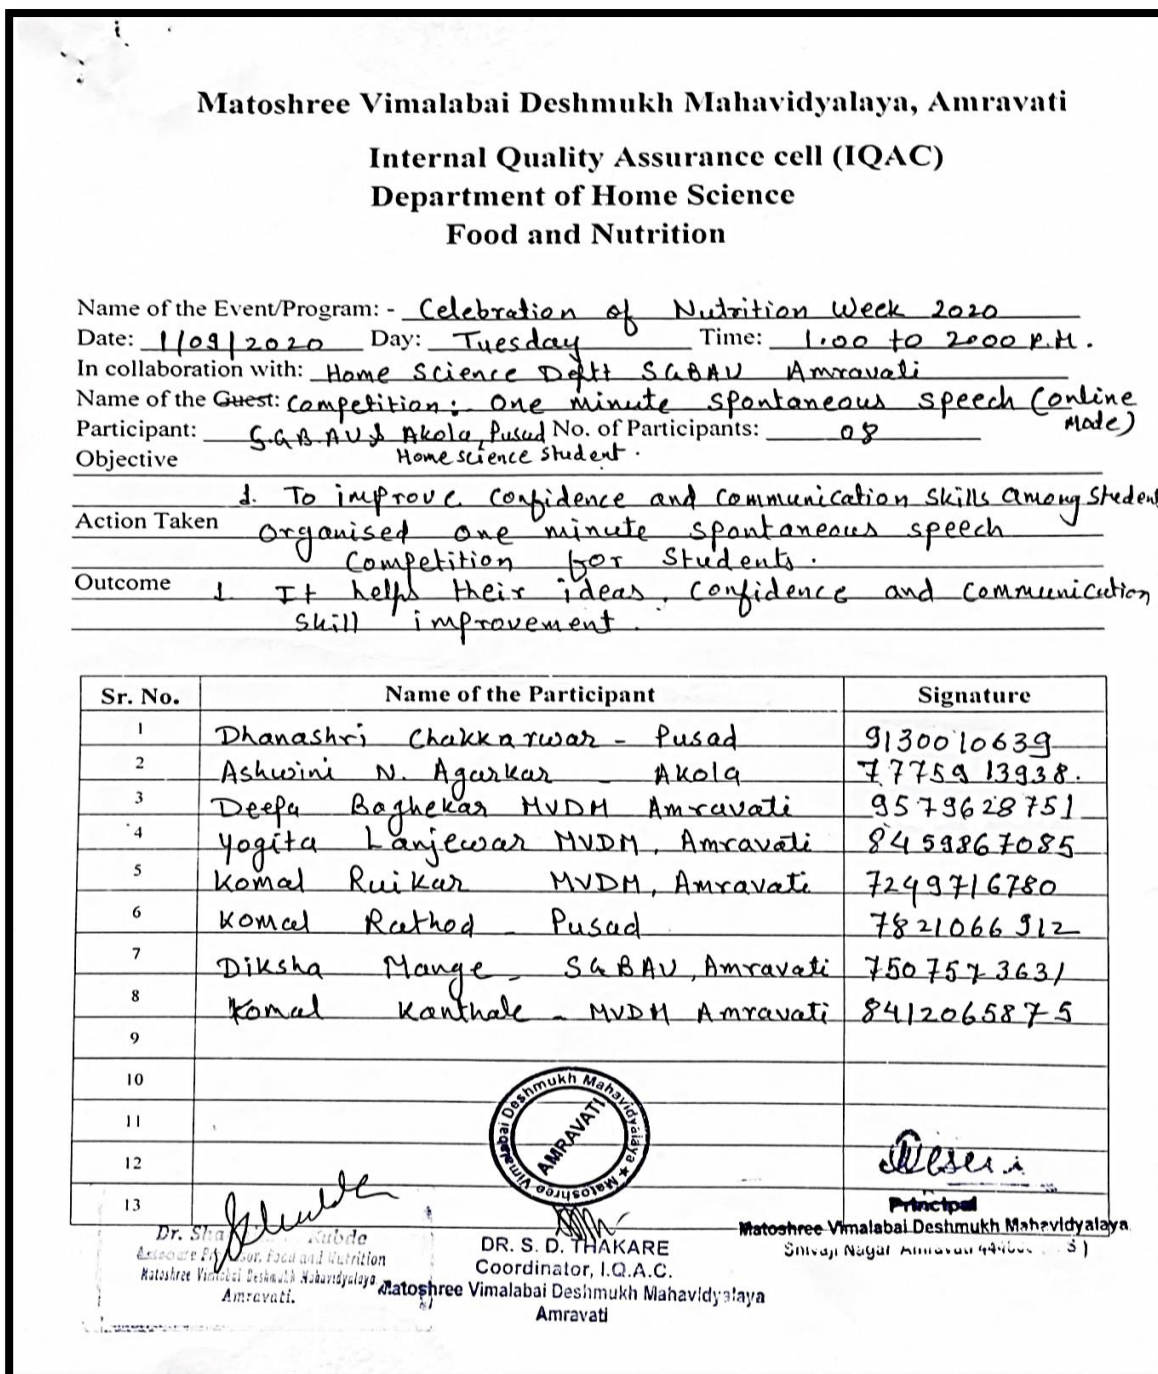 Matoshree Vimalabai Deshmukh Mahavidyalaya, Amravati
Internal Quality Assurance cell (IQAC)
Department of Home Science
Food and Nutrition
Name of the Event/Program: - Celebration of Nutrition Week 2020
Date: 1/09/2020 Day: Tuesday Time: 1.00 to 2000 P.M.
In collaboration with: Home Science Deptt SGBAU Amravati
Name of the Guest: Competition: One minute spontaneous speech (online Mode)
Participant: S.G.B.A.U & Akola, Pusad No. of Participants: 08
Home science student.
Objective
1. To improve confidence and communication skills among student
Action Taken Organised one minute spontaneous speech
Competition for Students.
Outcome 1 It helps their ideas, confidence and communication
Skill improvement.
Sr. No. Name of the Participant Signature
1 Dhanashri Chakkarwar - Pusad 9130010639
2 Ashwini N. Agarkar - Akola 7775913938.
3 Deepa Baghekar MVDM Amravati 9579628751
4 Yogita Lanjewar MVDM, Amravati 8459867085
5 Komal Ruikar MVDM, Amravati 7249716780
6 Komal Rathod Pusad 7821066912
7 Diksha Mange - SGBAU, Amravati 7507573631
8 Komal Kanthale - MVDM Amravati 8412065875
9
10
11
12
13
Matoshree Vimalabai Deshmukh Mahavidyalaya
AMRAVATI
Dr. Kubde
Associate Professor, Food and Nutrition
Matoshree Vimalabai Deshmukh Mahavidyalaya
Amravati.
DR. S. D. THAKARE
Coordinator, I.Q.A.C.
Matoshree Vimalabai Deshmukh Mahavidyalaya
Amravati
Principal
Matoshree Vimalabai Deshmukh Mahavidyalaya
Shivaji Nagar Amravati